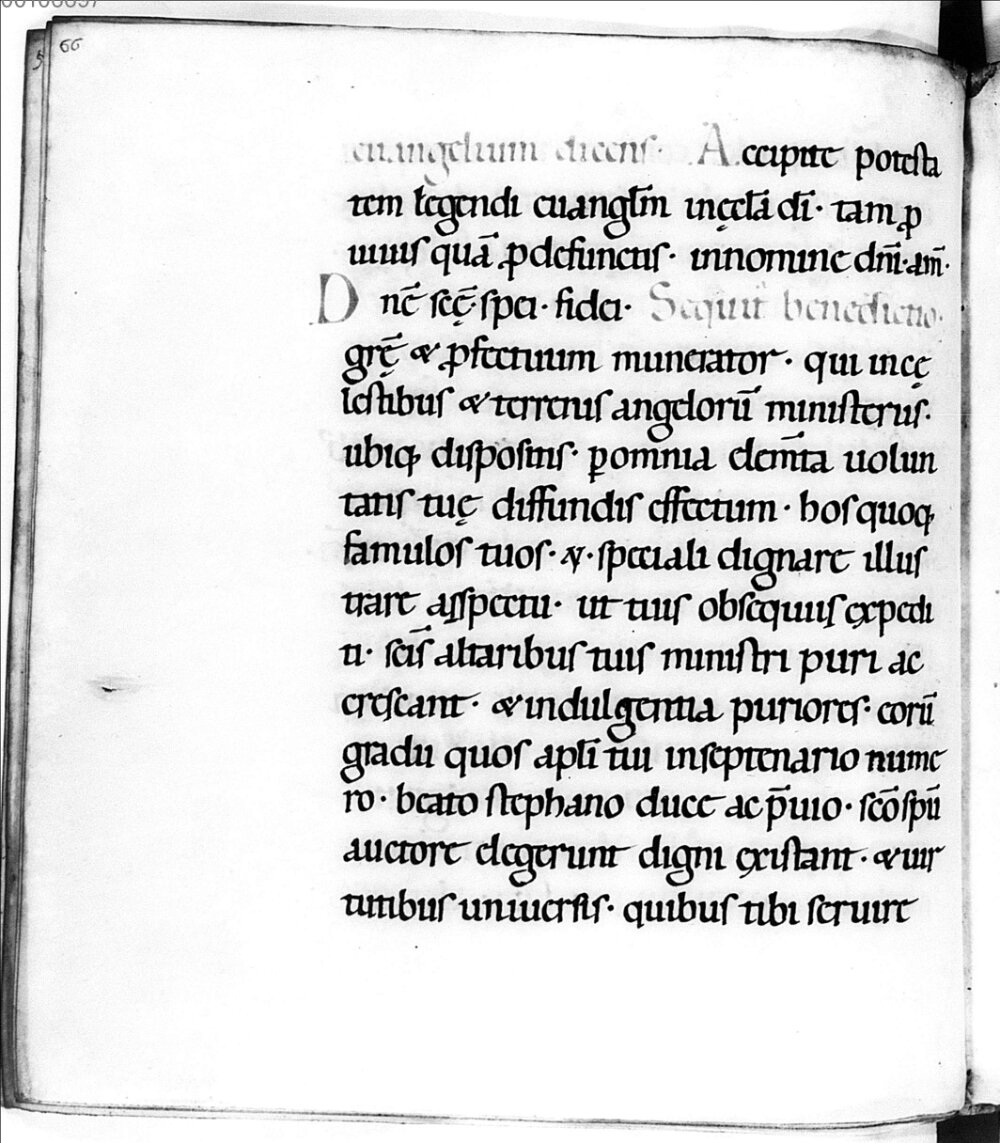 66
euangelium dicens· Accipite potesta
tem legendi euangl̄m inęcl̄a dī· tam ꝓ
uiuis quā ꝓdefunctis· innomine dn̄i·am̄·
Dn̄e sc̄ę·spei·fidei· Sequit᷑ benedictio·
gr̄ę & ꝓfectuum munerator· qui incę
lestibus & terrenis angelorū ministeriis·
ubiq; dispositis· ꝑomnia elem̄ta uolun
tatis tuę diffundis effectum· hos quoq;
famulos tuos·&·speciali dignare illus
trare asspectu· ut tuis obsequiis ęxpedi
ti· sc̄is altaribus tuis ministri puri ac
crescant· & indulgentia puriores· eorū
gradu quos apl̄i tui inseptenario nume
ro· beato stephano duce ac p̄uio· sc̄o sp̄ū
auctore elegerunt digni ęxistant· & uir
tutibus uniuersis· quibus tibi seruire